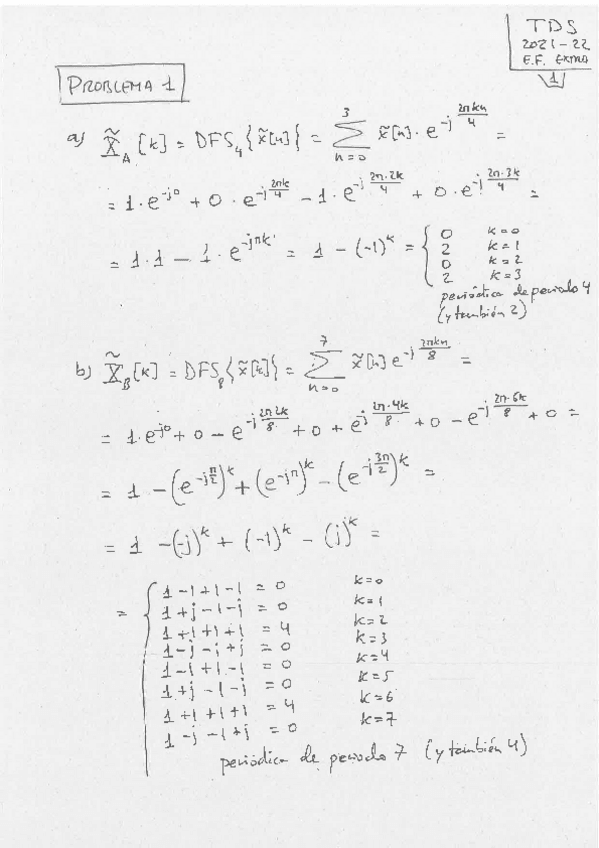 TDS
2021-22
E.F. EXTRA
1
PROBLEMA 1
a) X̃_A[k] = DFS_4{x̃[n]} = Σ_{n=0}^{3} x̃[n] · e^{-j 2πkn/4} =
= 1·e^{-j0} + 0·e^{-j 2πk/4} - 1·e^{-j 2π·2k/4} + 0·e^{-j 2π·3k/4} =
= 1·1 - 1·e^{-jπk} = 1 - (-1)^k = { 0 k=0
2 k=1
0 k=2
2 k=3
periódica de periodo 4
(y también 2)
b) X̃_B[k] = DFS_8{x̃[k]} = Σ_{n=0}^{7} x̃[n] e^{-j 2πkn/8} =
= 1·e^{j0} + 0 - e^{-j 2π2k/8} + 0 + e^{j 2π·4k/8} + 0 - e^{-j 2π·6k/8} + 0 =
= 1 - (e^{-jπ/2})^k + (e^{-jπ})^k - (e^{-j3π/2})^k =
= 1 - (-j)^k + (-1)^k - (j)^k =
= { 1-1+1-1 = 0 k=0
1+j-1-j = 0 k=1
1+1+1+1 = 4 k=2
1-j-1+j = 0 k=3
1-1+1-1 = 0 k=4
1+j-1-j = 0 k=5
1+1+1+1 = 4 k=6
1-j-1+j = 0 k=7
periódica de periodo 7 (y también 4)